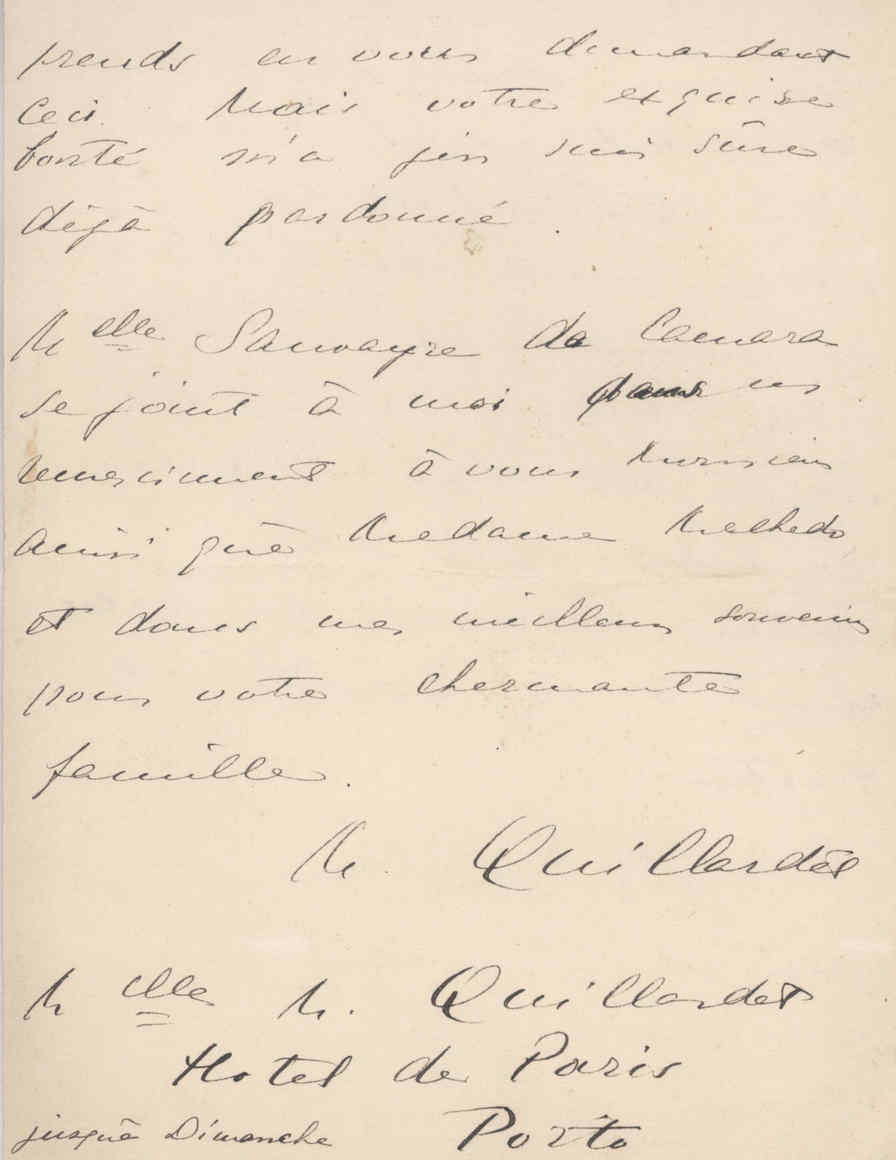 prends en vous demandant
ceci. Mais votre exquise
bonté m'a j'en suis sûre
déjà pardonné.
Melle Sauvayre da Camara
se joint à moi dans un
remerciment à vous Monsieur
ainsi qu'à Madame Machado
et dans mes meilleurs souvenirs
pour votre charmante
famille.
M. Quillardet
Melle M. Quillardet
Hotel de Paris
jusqu'à Dimanche Porto